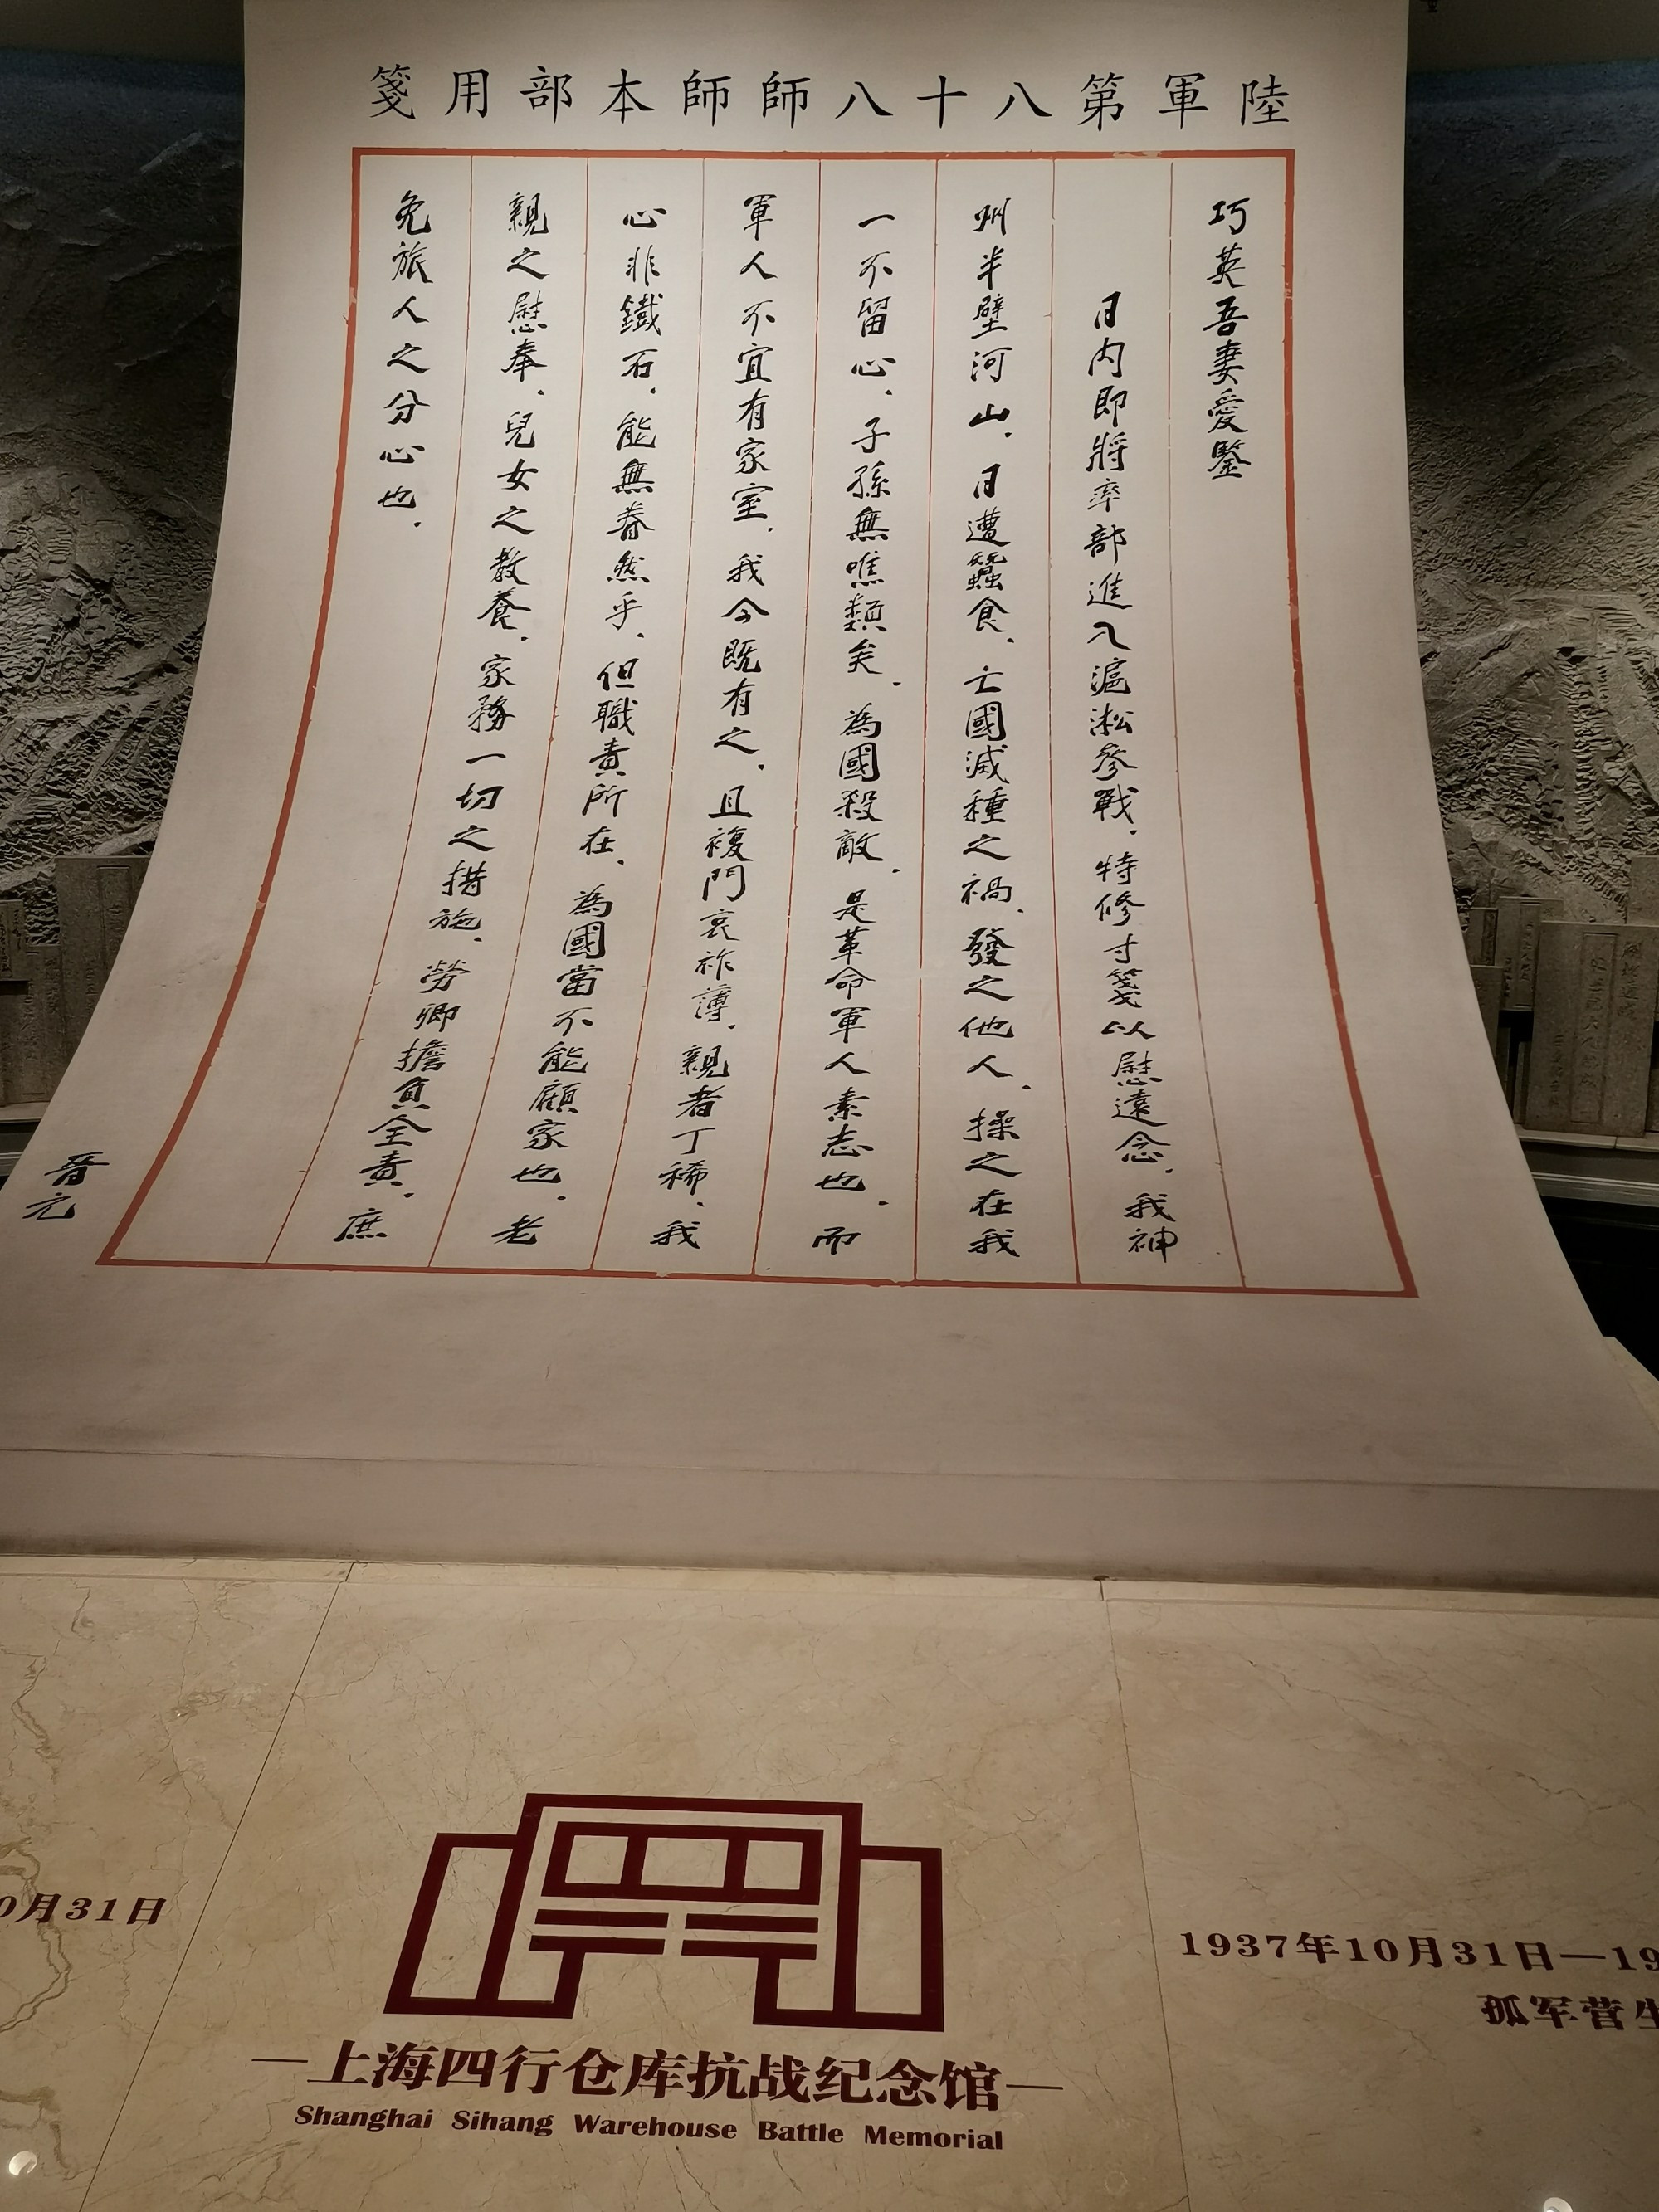 陸軍第八十八師師本部用箋
巧英吾妻愛鑒
日内即將率部進入滬淞參戰．特修寸箋以慰遠念．我神
州半壁河山．日遭蠶食．亡國滅種之禍．發之他人．操之在我
一不留心．子孫無噍類矣．為國殺敵．是革命軍人素志也．而
軍人不宜有家室．我今既有之．且複門衰祚薄．親者丁稀．我
心非鐵石．能無眷然乎．但職責所在．為國當不能顧家也．老
親之慰奉．兒女之教養．家務一切之措施．勞卿擔負全責．庶
免旅人之分心也．
晉元
0月31日
1937年10月31日—19
孤军营生
—上海四行仓库抗战纪念馆—
Shanghai Sihang Warehouse Battle Memorial